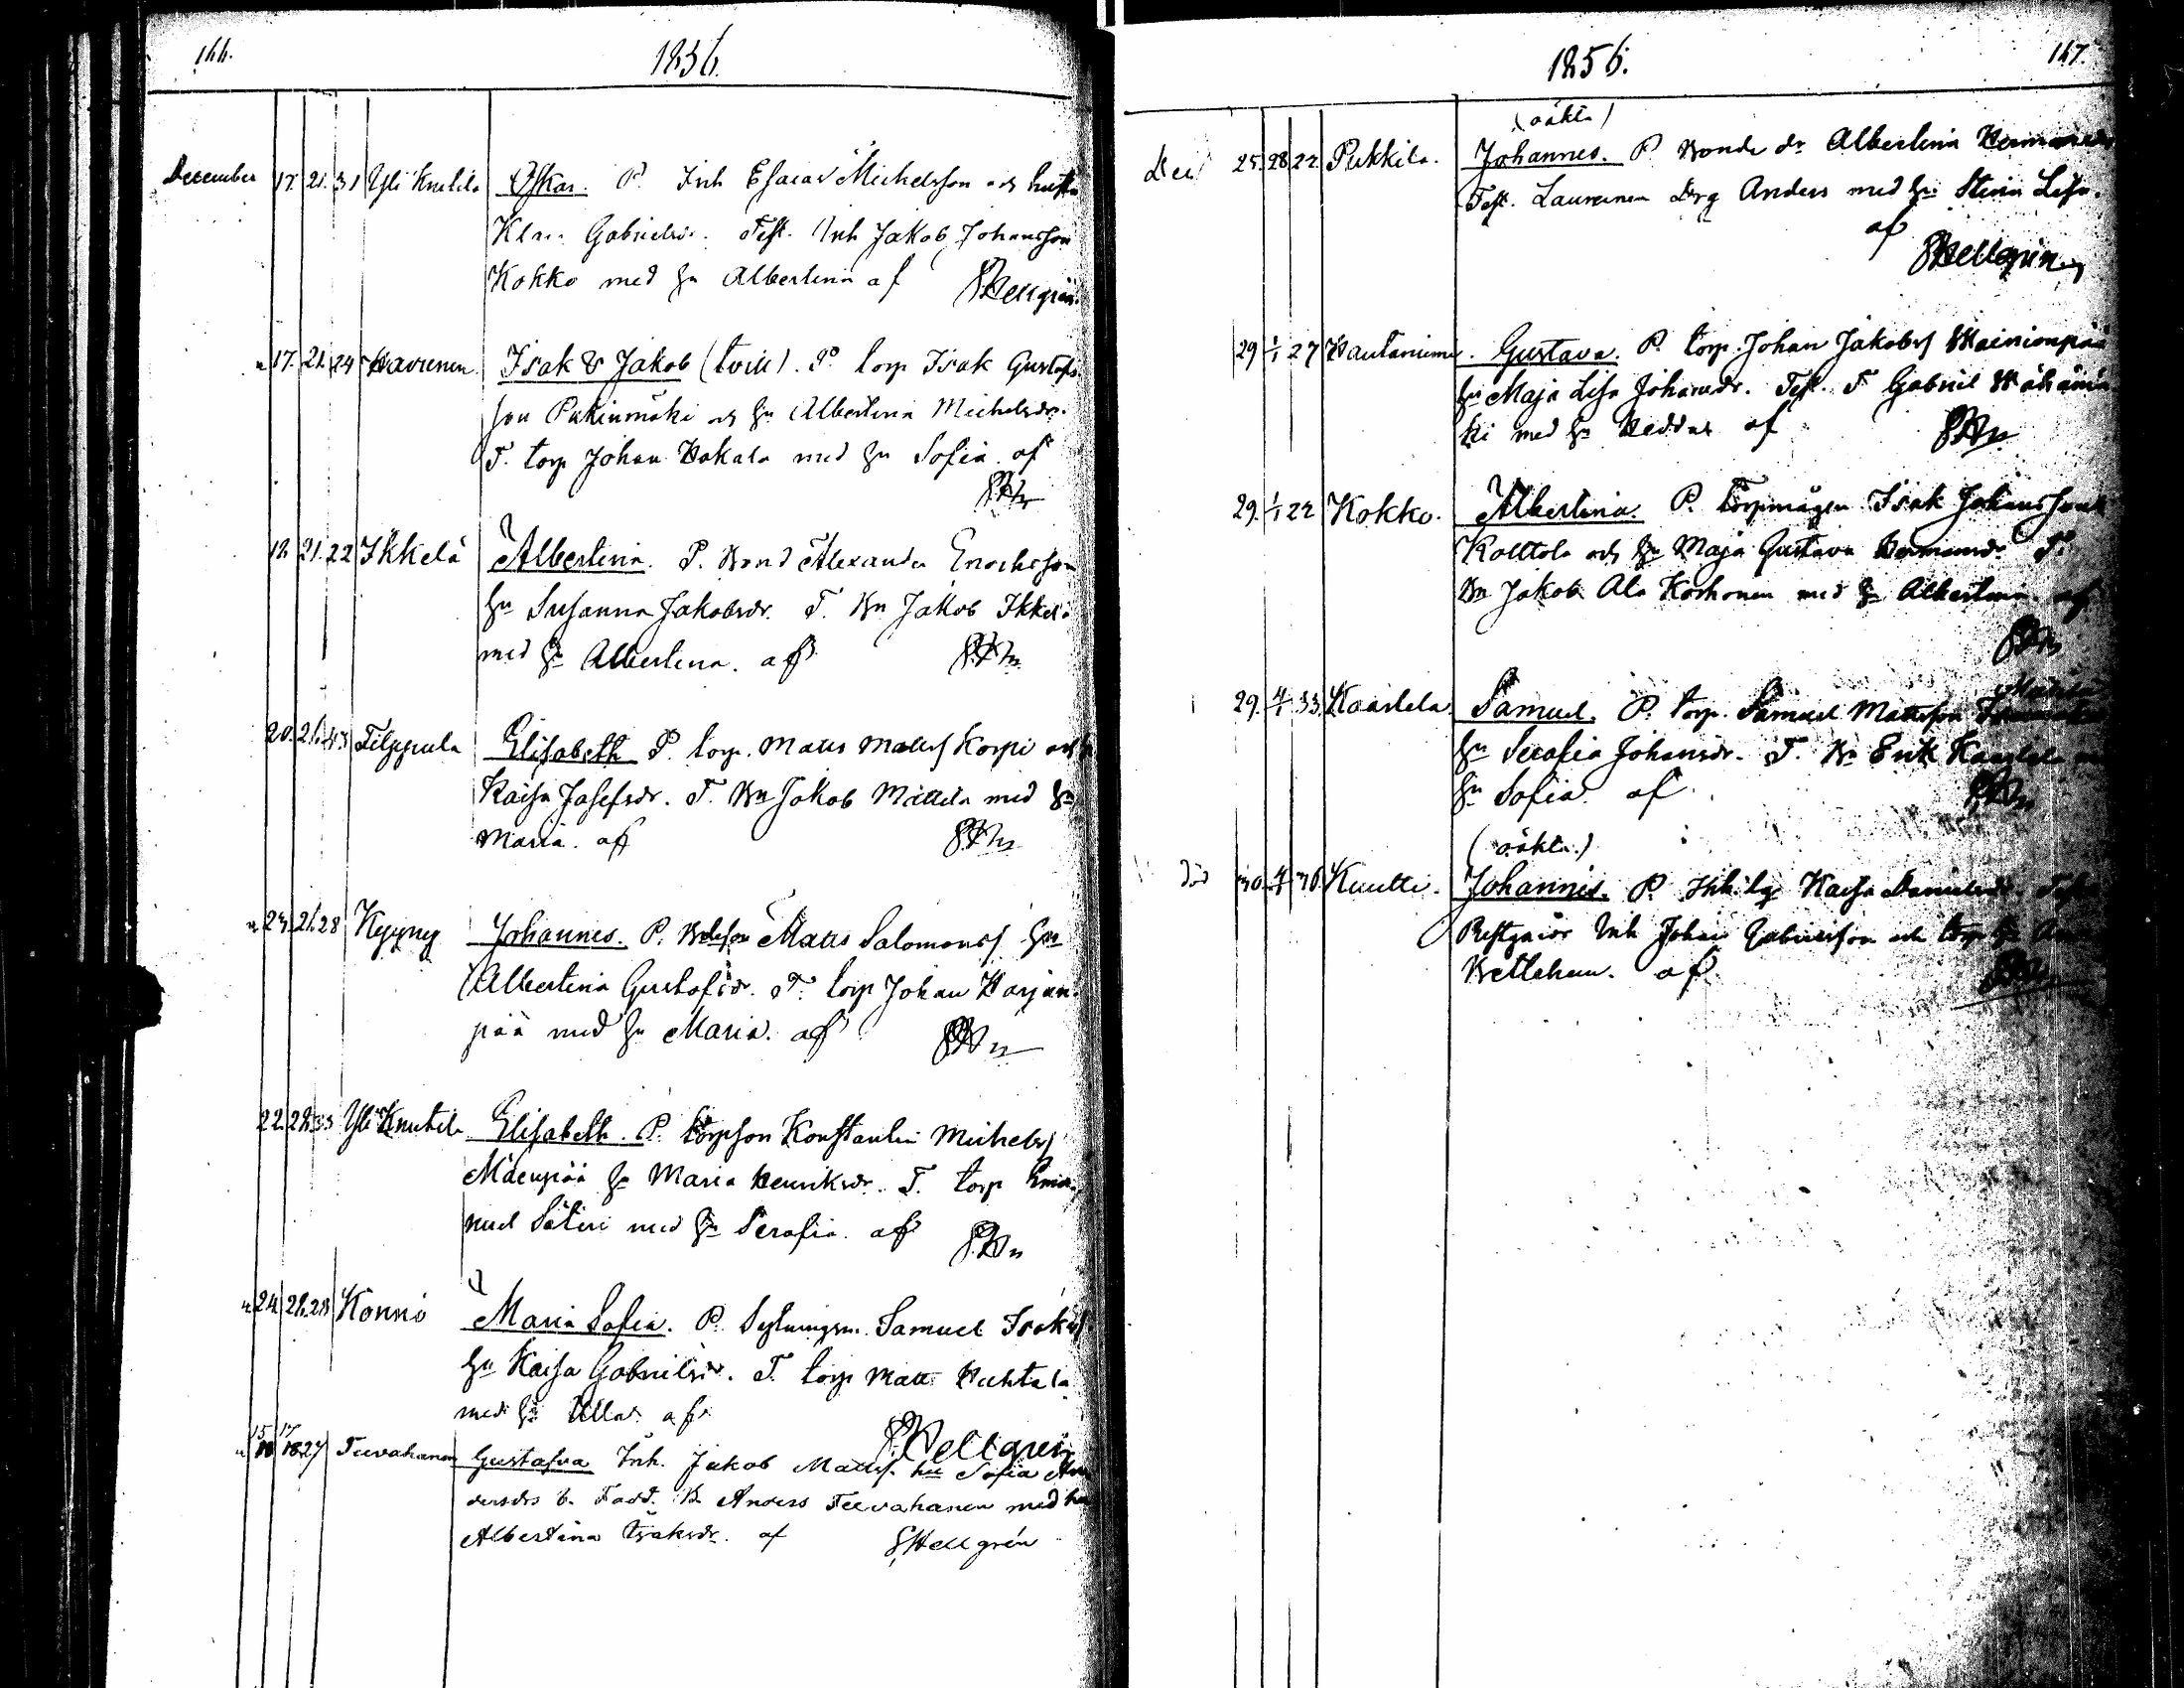 166.
1856.
December 17. 21. 31 Yli Knutila Oskar. P. Inh Esaias Michelsson och hustru
Klara Gabrielsdr. Test. Inh Jakob Johansson
Kokko med hu Albertina af Hellgrén
" 17. 21. 24 Isak & Jakob (tvill). P. torp Isak Gustafs
son Pukinmäki och hu Albertina Michelsdr.
T. torp Johan Hakala med hu Sofia af
18 21. 22 Ikkelä Albertina. P. Bond Alexander Enochsson
hu Susanna Jakobsdr. T. Bn Jakob Ikkelä
med hu Albertina. af
20. 21. 43 Filppula Elisabeth P. torp. Matts Mattss Korpi och
Kaisa Josefsdr. T. Bn Jakob Mattila med hu
Maria. af
" 23. 21. 28 Kyyny Johannes. P. Matts Salomonss hu
Albertina Gustafsdr. T. torp Johan Harjun
pää med hu Maria. af
22. 28. 33 Yli Knutila Elisabeth. P. torpson Konstantin Michelss
Mäenpää hu Maria Henriksdr. T. torp Ema
nuel Säteri med hu Serafia. af
" 24. 28. 28 Könnö Maria Sofia. P. Sytningsm. Samuel Isakss
hu Kaisa Gabrielsdr. T. torp Matts Huhtala
med hu Ulla. af
Hellgrén
" 15 17 27 Teevahanen Gustafva Inh. Jakob Mattss. hu Sofia An
dersdr b. Fadd. B. Anders Teevahanen med hu
Albertina Isaksdr. af Hellgrén
1856.
167.
(oäkta)
Dec 25 28 22 Pukkila. Johannes. P. Bonde dr Albertina Hermansdr
Test. Laurenen Drg Anders med hu Stina Lisa.
af
Hellgrén
29 1/1 27 Wantaniemi. Gustava. P. torp. Johan Jakobss Wainionpää
hu Maja Lisa Johansdr. Test. T Gabriel Wähämä
ki med hu Hedda af
29. 1/1 22 Kokko. Albertina. P. torpmågen Isak Johansson
Kolttola och hu Maja Gustava Hermansdr T.
Bn Jakob Ala Korhonen med hu Albertina af
29. 4/1 33. Kaarlela Samuel. P. torp. Samuel Mattsson
hu Serafia Johansdr. T. Bn Erik Kaarlela
hu Sofia. af
(oäkta.)
30. 4/1 Kuutti. Johannes. P. Kaisa Danielsdr. Test
Inh Johan Gabrielsson och torp hu
Betlehem. af